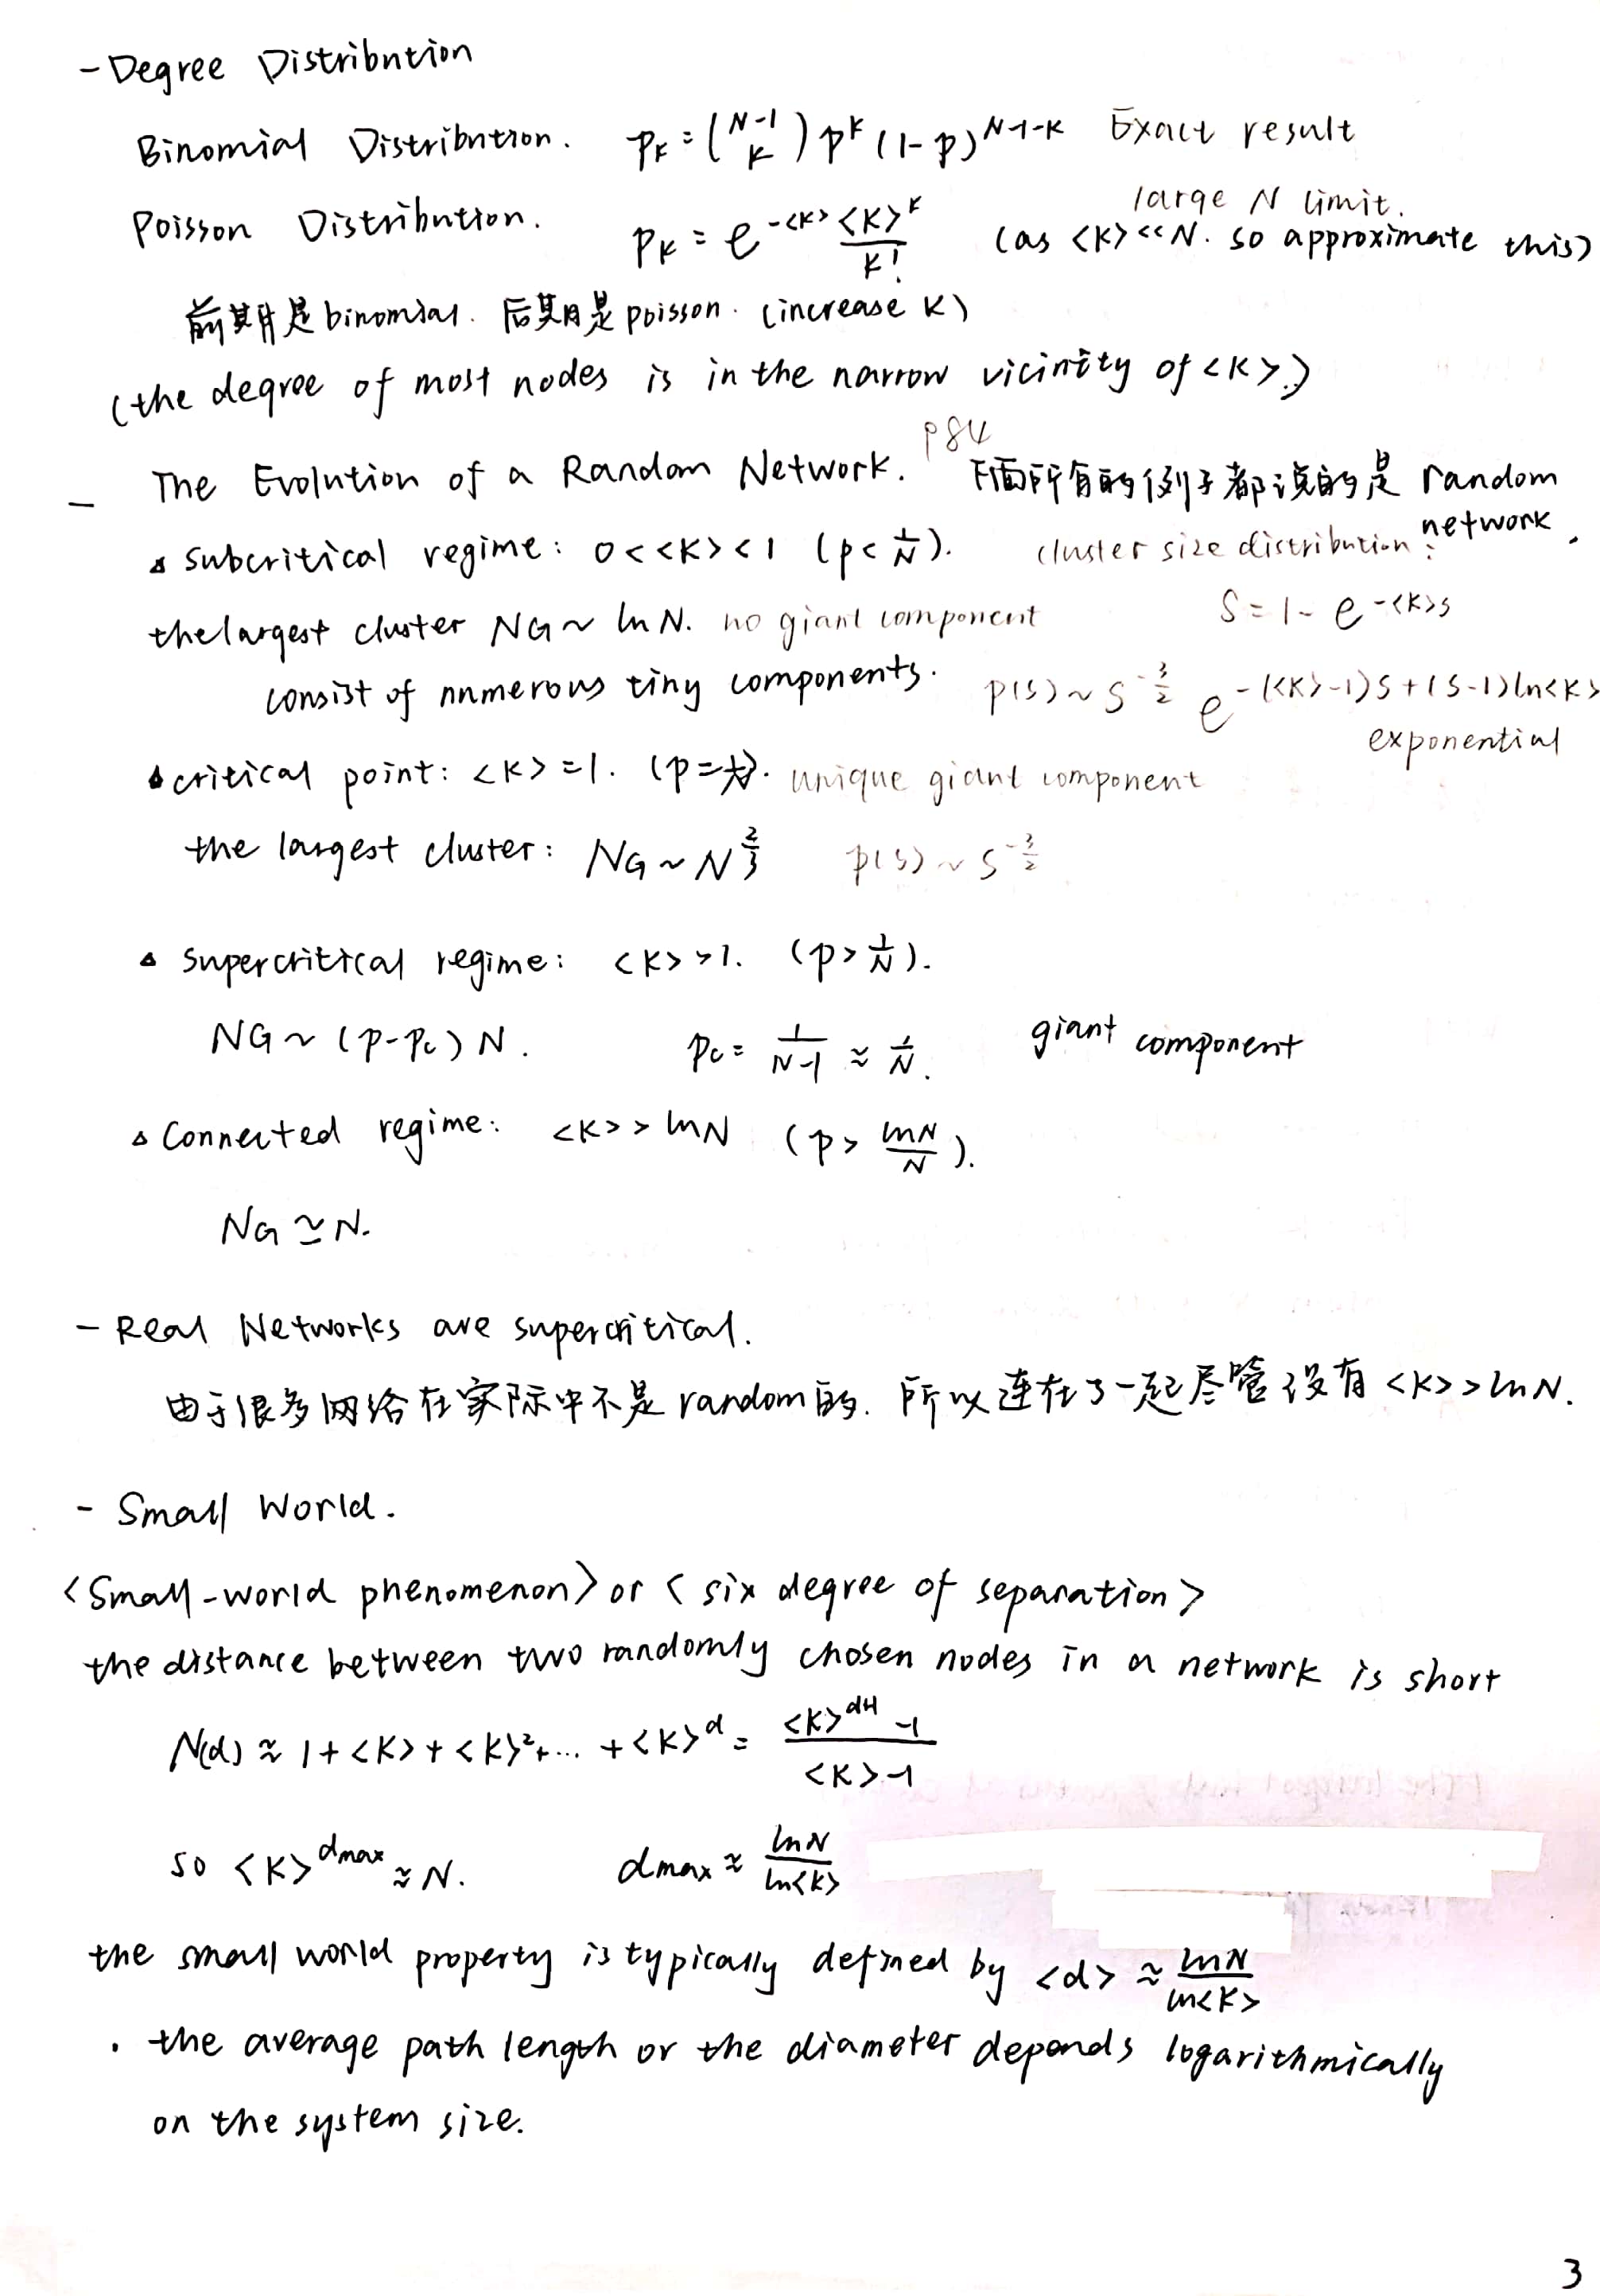 - Degree Distribution
Binomial Distribution. p_k = (N-1 K) p^k (1-p)^{N-1-k} Exact result
large N limit.
Poisson Distribution. p_k = e^{-<k>} <k>^k / k! (as <k> << N. so approximate this)
前期是binomial. 后期是poisson. (increase K)
(the degree of most nodes is in the narrow vicinity of <k>.)
- The Evolution of a Random Network. P84 下面所有的例子都说的是 random network.
△ subcritical regime: 0<<k><1 (p<1/N). cluster size distribution:
the largest cluster NG ~ ln N. no giant component S = 1 - e^{-<k>s}
consist of numerous tiny components. p(s) ~ s^{-3/2} e^{-(<k>-1)s+(s-1)ln<k>}
exponential
△ critical point: <k> = 1. (p=1/N). unique giant component
the largest cluster: NG ~ N^{2/3} p(s) ~ s^{-3/2}
△ supercritical regime: <k> > 1. (p > 1/N).
NG ~ (p-pc) N. pc = 1/(N-1) ≈ 1/N. giant component
△ Connected regime: <k> > ln N (p > lnN/N).
NG ≃ N.
- Real Networks are supercritical.
由于很多网络在实际中不是random的. 所以连在了一起尽管没有 <k> > ln N.
- Small World.
<Small-world phenomenon> or < six degree of separation>
the distance between two randomly chosen nodes in a network is short
N(d) ≈ 1 + <k> + <k>² + ... + <k>^d = (<k>^{d+1} - 1)/(<k> - 1)
so <k>^{dmax} ≈ N. dmax ≈ lnN/ln<k>
the small world property is typically defined by <d> ≈ lnN/ln<k>
· the average path length or the diameter depends logarithmically
on the system size.
3